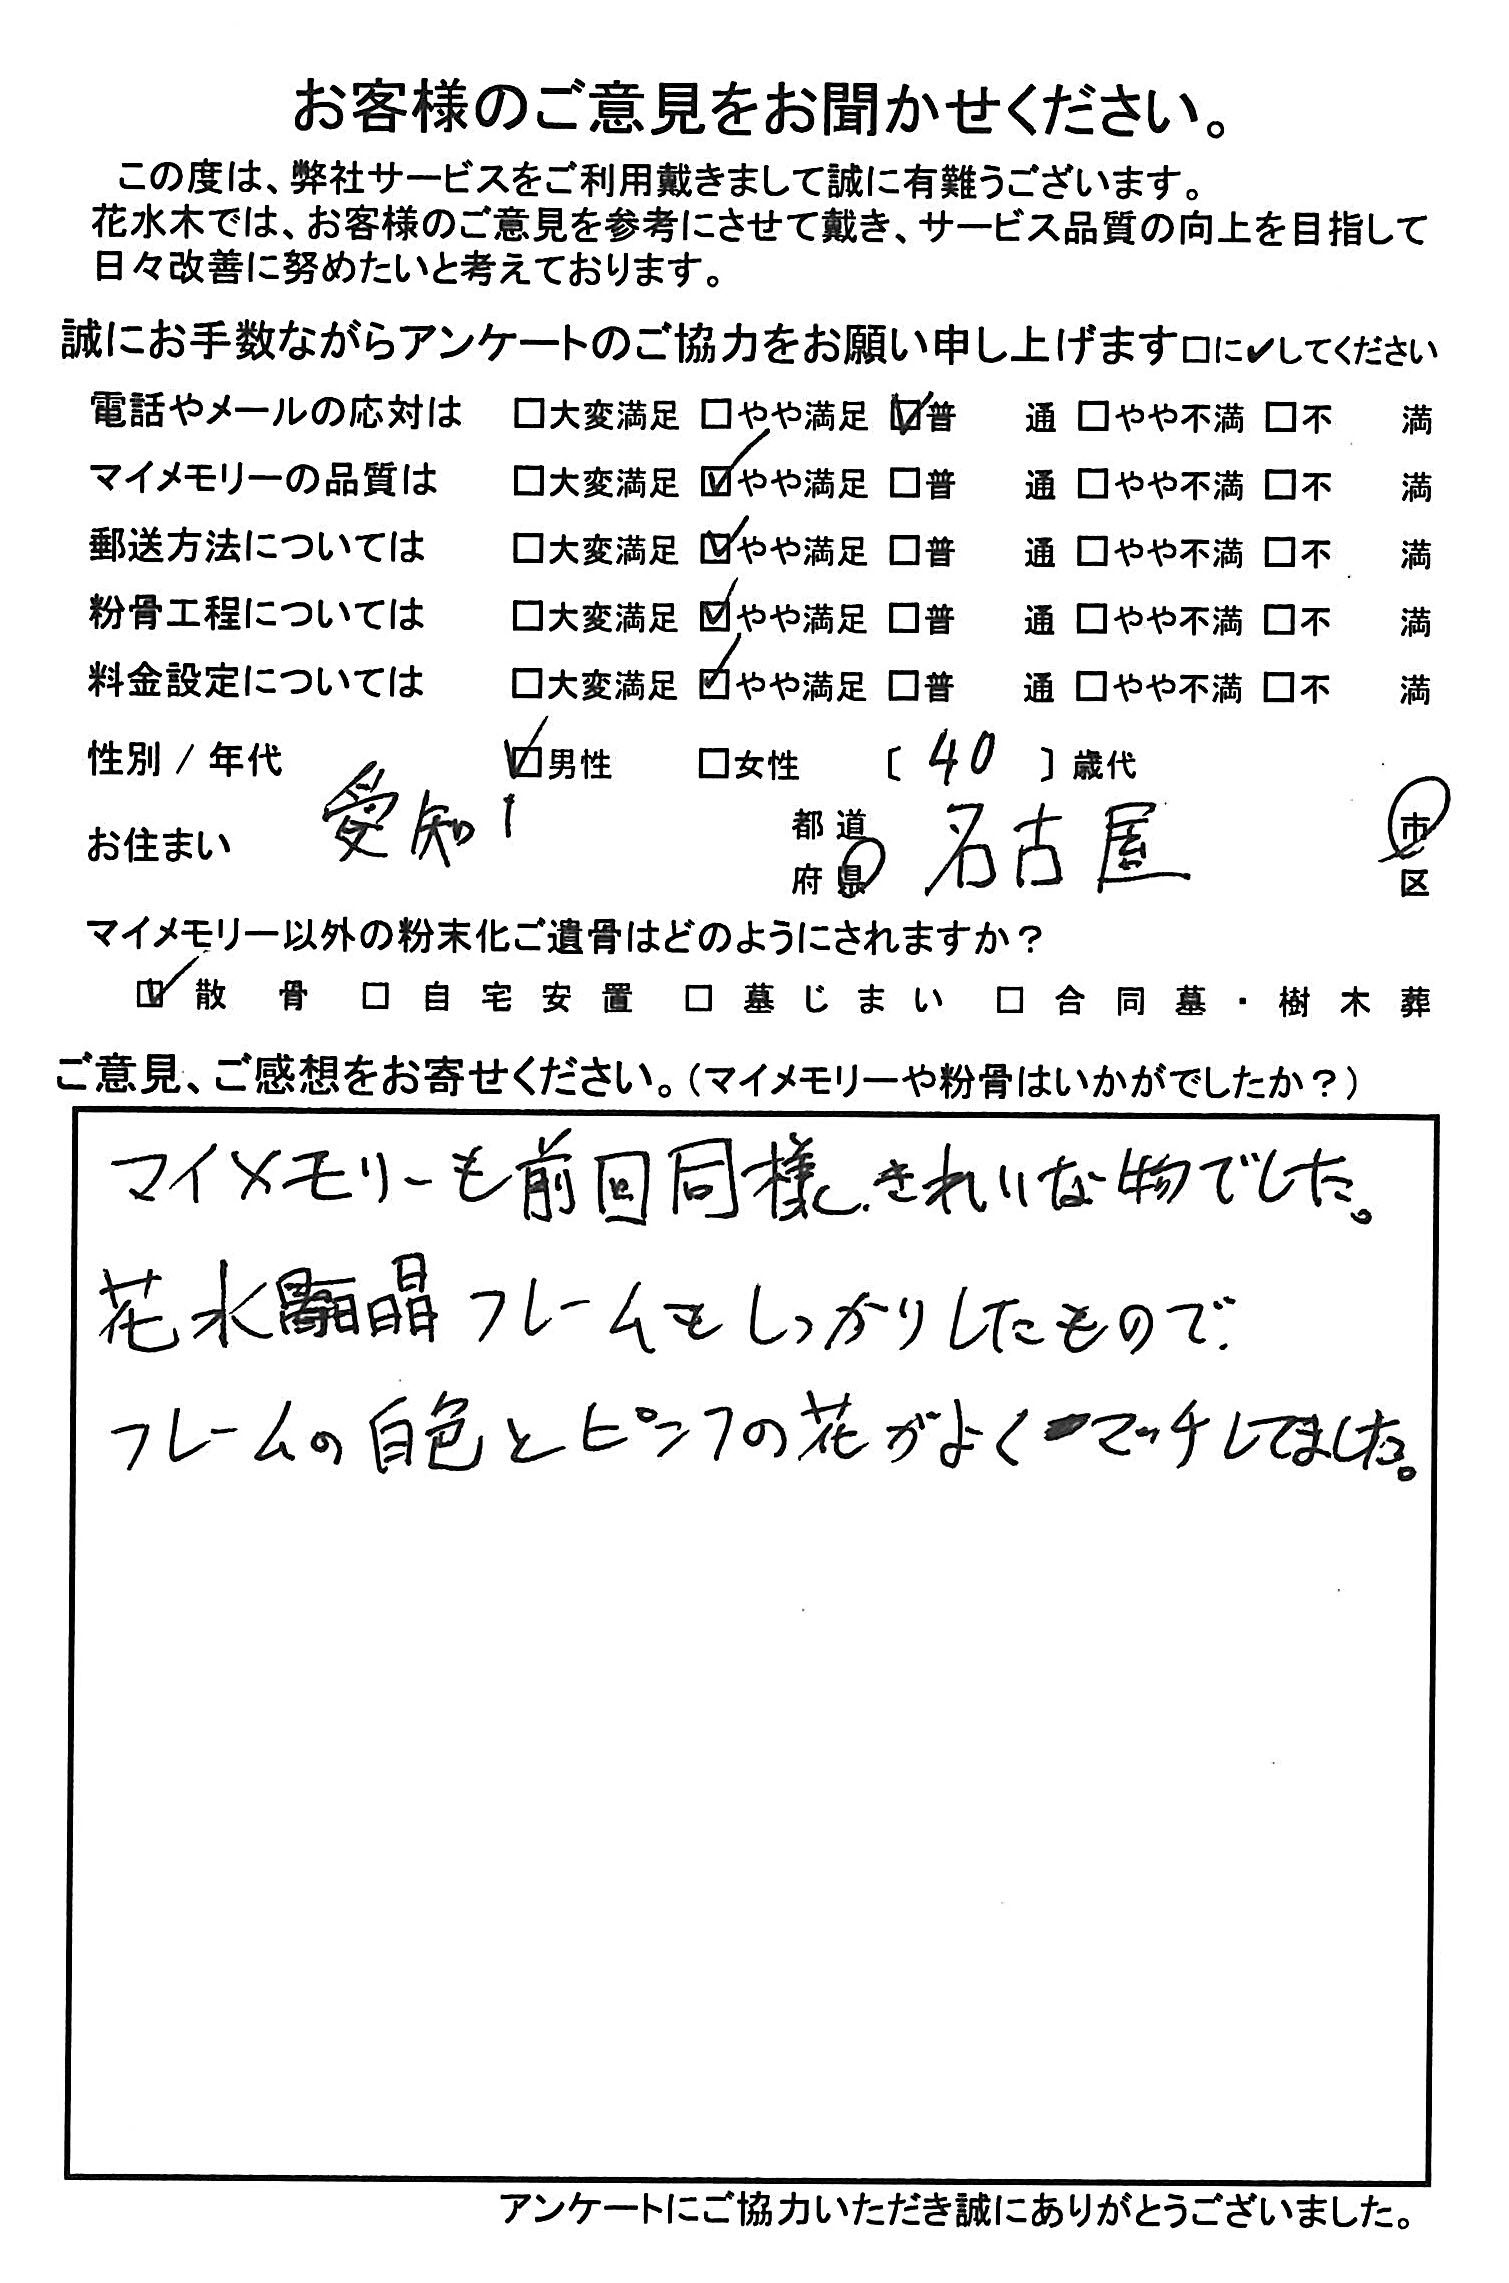 お客様のご意見をお聞かせください。
この度は、弊社サービスをご利用戴きまして誠に有難うございます。
花水木では、お客様のご意見を参考にさせて戴き、サービス品質の向上を目指して
日々改善に努めたいと考えております。
誠にお手数ながらアンケートのご協力をお願い申し上げます□に✔してください
電話やメールの応対は □大変満足 □やや満足 ☑普 通 □やや不満 □不 満
マイメモリーの品質は □大変満足 ☑やや満足 □普 通 □やや不満 □不 満
郵送方法については □大変満足 ☑やや満足 □普 通 □やや不満 □不 満
粉骨工程については □大変満足 ☑やや満足 □普 通 □やや不満 □不 満
料金設定については □大変満足 ☑やや満足 □普 通 □やや不満 □不 満
性別 / 年代 ☑男性 □女性 〔 40 〕歳代
お住まい 愛知 都道府県 名古屋 市区
マイメモリー以外の粉末化ご遺骨はどのようにされますか？
☑散骨 □自宅安置 □墓じまい □合同墓・樹木葬
ご意見、ご感想をお寄せください。（マイメモリーや粉骨はいかがでしたか？）
マイメモリーも前回同様、きれいな物でした。
花水晶フレームもしっかりしたもので、
フレームの白色とピンクの花がよくマッチしてました。
アンケートにご協力いただき誠にありがとうございました。